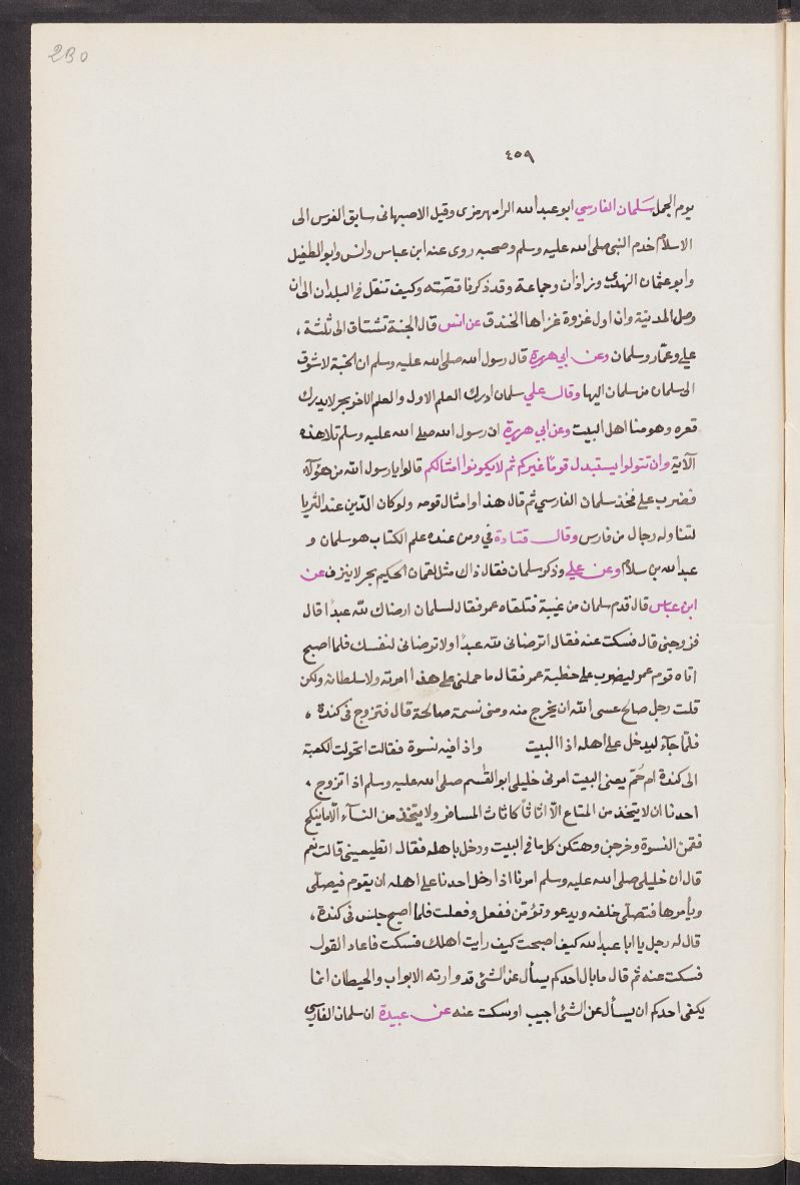 2B0
٤٥٩
يوم الجمل سلمان الفارسي ابو عبد الله الرامهرمزى وقيل الاصبهانى سابق الفرس الى
الاسلام خدم النبى صلى الله عليه وسلم وصحبه روى عنه ابن عباس وانس وابو الطفيل
وابو عثمان النهدى وزاذان وجماعة وقد ذكرنا قصته وكيف تنقل فى البلدان الى ان
وصل المدنية وان اول غزوة غزاها الخندق عن انس قال الجنة تشتاق الى ثلثة ،
علي وعمّار وسلمان وعن ابي هريرة قال رسول الله صلى الله عليه وسلم ان الجنة لاشوق
الى سلمان من سلمان اليها وقال علي سلمان ادرك العلم الاول والعلم الاخر بحر لا يدرك
قعره وهو منا اهل البيت وعن ابي هريرة ان رسول الله صلى الله عليه وسلم تلا هذه
الآية وان تتولوا يستبدل قومًا غيركم ثم لا يكونوا امثالكم قالوا يا رسول الله من هؤلآء
فضرب على فخذ سلمان الفارسي ثم قال هذا وامثال قومه ولو كان الدّين عند الثريا
لتناوله رجال من فارس وقال قتادة في ومن عنده علم الكتاب هو سلمان و
عبد الله بن سلام وعن علي وذكر سلمان فقال ذاك مثل لقمان الحكيم بحر لا ينزف عن
ابن عباس قال قدم سلمان من غيبة فتلقاه عمر فقال لسلمان ارضاك لله عبدًا قال
فزوجنى قال فسكت عنه فقال اترضانى لله عبدًا ولا ترضانى لنفسك فلما اصبح
اتاه قوم عمر ليضرب على خطبة عمر فقال ما حملنى على هذا امرته ولا سلطانه ولكن
قلت رجل صالح عسى الله ان يخرج منه ومنى نسمة صالحة قال فتزوج فى كندة ،
فلمّا جآء ليدخل على اهله اذا البيت واذا فيه نسوة فقالت اتحولت الكعبة
الى كندة ام حُمّ يعنى البيت امرنى خليلى ابو القٰسم صلى الله عليه وسلم اذا تزوج ،
احدنا ان لا يتخذ من المتاع الّا اثاثاً كاثاث المسافر ولا يتخذ من النسآء الّا ما ينكح
فقمن النسوة وخرجن وهتكن كل ما فى البيت ودخل باهله فقال اتطيعينى قالت نعم
قال ان خليلى صلى الله عليه وسلم امرنا اذا دخل احدنا على اهله ان يقوم فيصلّى
ويأمرها فتصلّى خلفه ويدعو وتؤمّن ففعل وفعلت فلما اصبح جلس فى كندة ،
قال له رجل يا ابا عبد الله كيف اصبحت كيف رايت اهلك فسكت فاعاد القول
فسكت عنه ثم قال ما بال احدكم يسأل عن الشئ قد وارته الابواب والحيطان انما
يكفى احدكم ان يسأل عن الشئ اجيب او سُكت عنه عن عبيدة ان سلمان الفارسي